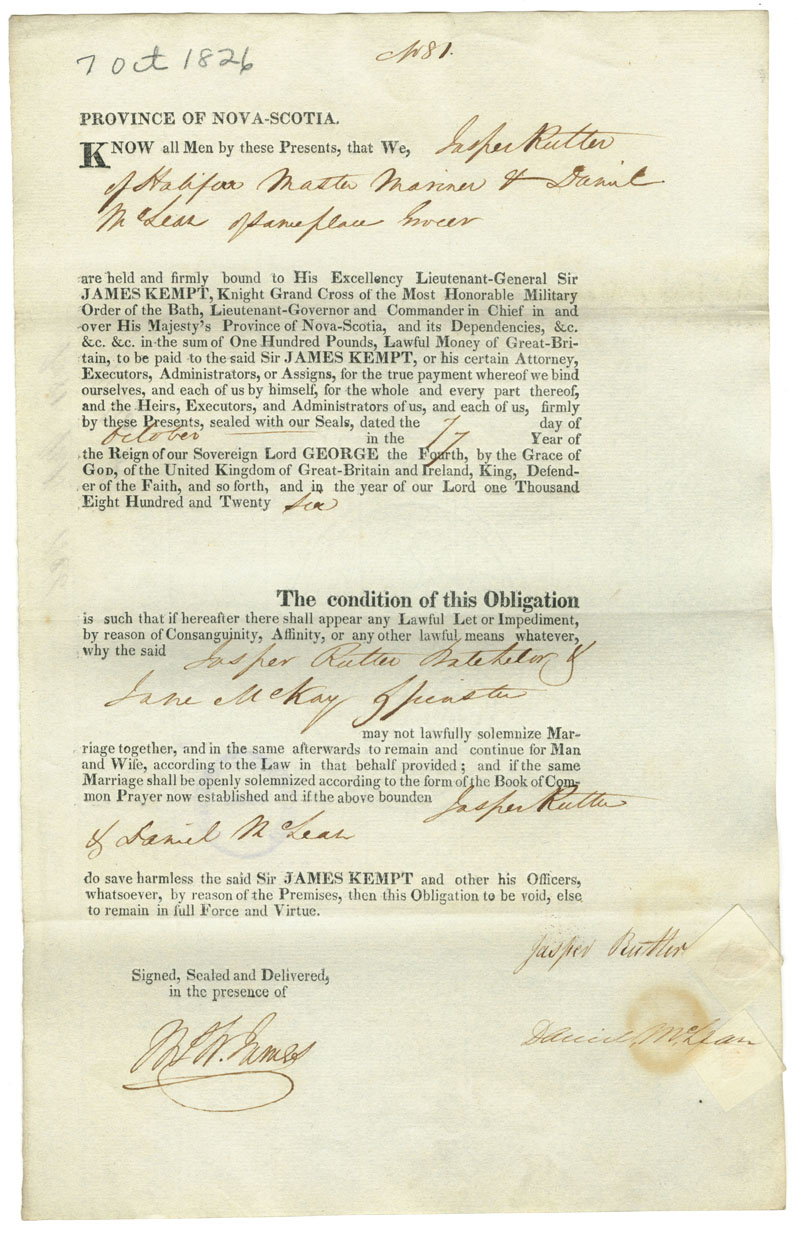 7 Oct 1826
No 81.
PROVINCE OF NOVA-SCOTIA.
KNOW all Men by these Presents, that We, Jasper Rutter
of Halifax Master Mariner & Daniel
McLean of same place Grocer
are held and firmly bound to His Excellency Lieutenant-General Sir
JAMES KEMPT, Knight Grand Cross of the Most Honorable Military
Order of the Bath, Lieutenant-Governor and Commander in Chief in and
over His Majesty's Province of Nova-Scotia, and its Dependencies, &c.
&c. &c. in the sum of One Hundred Pounds, Lawful Money of Great-Bri-
tain, to be paid to the said Sir JAMES KEMPT, or his certain Attorney,
Executors, Administrators, or Assigns, for the true payment whereof we bind
ourselves, and each of us by himself, for the whole and every part thereof,
and the Heirs, Executors, and Administrators of us, and each of us, firmly
by these Presents, sealed with our Seals, dated the 7 day of
October in the 7 Year of
the Reign of our Sovereign Lord GEORGE the Fourth, by the Grace of
GOD, of the United Kingdom of Great-Britain and Ireland, King, Defend-
er of the Faith, and so forth, and in the year of our Lord one Thousand
Eight Hundred and Twenty Six
The condition of this Obligation
is such that if hereafter there shall appear any Lawful Let or Impediment,
by reason of Consanguinity, Affinity, or any other lawful means whatever,
why the said Jasper Rutter Batchelor &
Jane McKay Spinster
may not lawfully solemnize Mar-
riage together, and in the same afterwards to remain and continue for Man
and Wife, according to the Law in that behalf provided; and if the same
Marriage shall be openly solemnized according to the form of the Book of Com-
mon Prayer now established and if the above bounden Jasper Rutter
& Daniel McLean
do save harmless the said Sir JAMES KEMPT and other his Officers,
whatsoever, by reason of the Premises, then this Obligation to be void, else
to remain in full Force and Virtue.
Jasper Rutter
Signed, Sealed and Delivered,
in the presence of
Daniel McLean
James